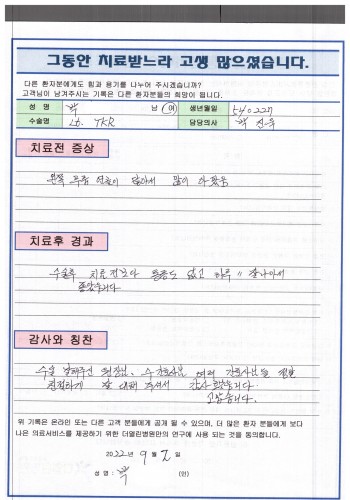 그동안 치료받느라 고생 많으셨습니다.
다른 환자분에게도 힘과 용기를 나누어 주시겠습니까?
고객님이 남겨주시는 기록은 다른 환자분들의 희망이 됩니다.
성 명 박 남 여 생년월일 540227
수술명 Lt. TKR 담당의사 박진욱
치료전 증상
왼쪽 무릎 연골이 닳아서 많이 아팠음
치료후 경과
수술후 치료 전보다 통증도 없고 하루하루 잘 나아서
좋았습니다
감사와 칭찬
수술 잘해주신 원장님, 수간호사님 여러 간호사님들 정말
친절하게 잘 대해 주셔서 감사했습니다.
고맙습니다.
위 기록은 온라인 또는 다른 고객 분들에게 공개 될 수 있으며, 더 많은 환자 분들에게 보다
나은 의료서비스를 제공하기 위한 더열린병원만의 연구에 사용 되는 것을 동의합니다.
2022년 9월 2일
성 명 : 박 (인)